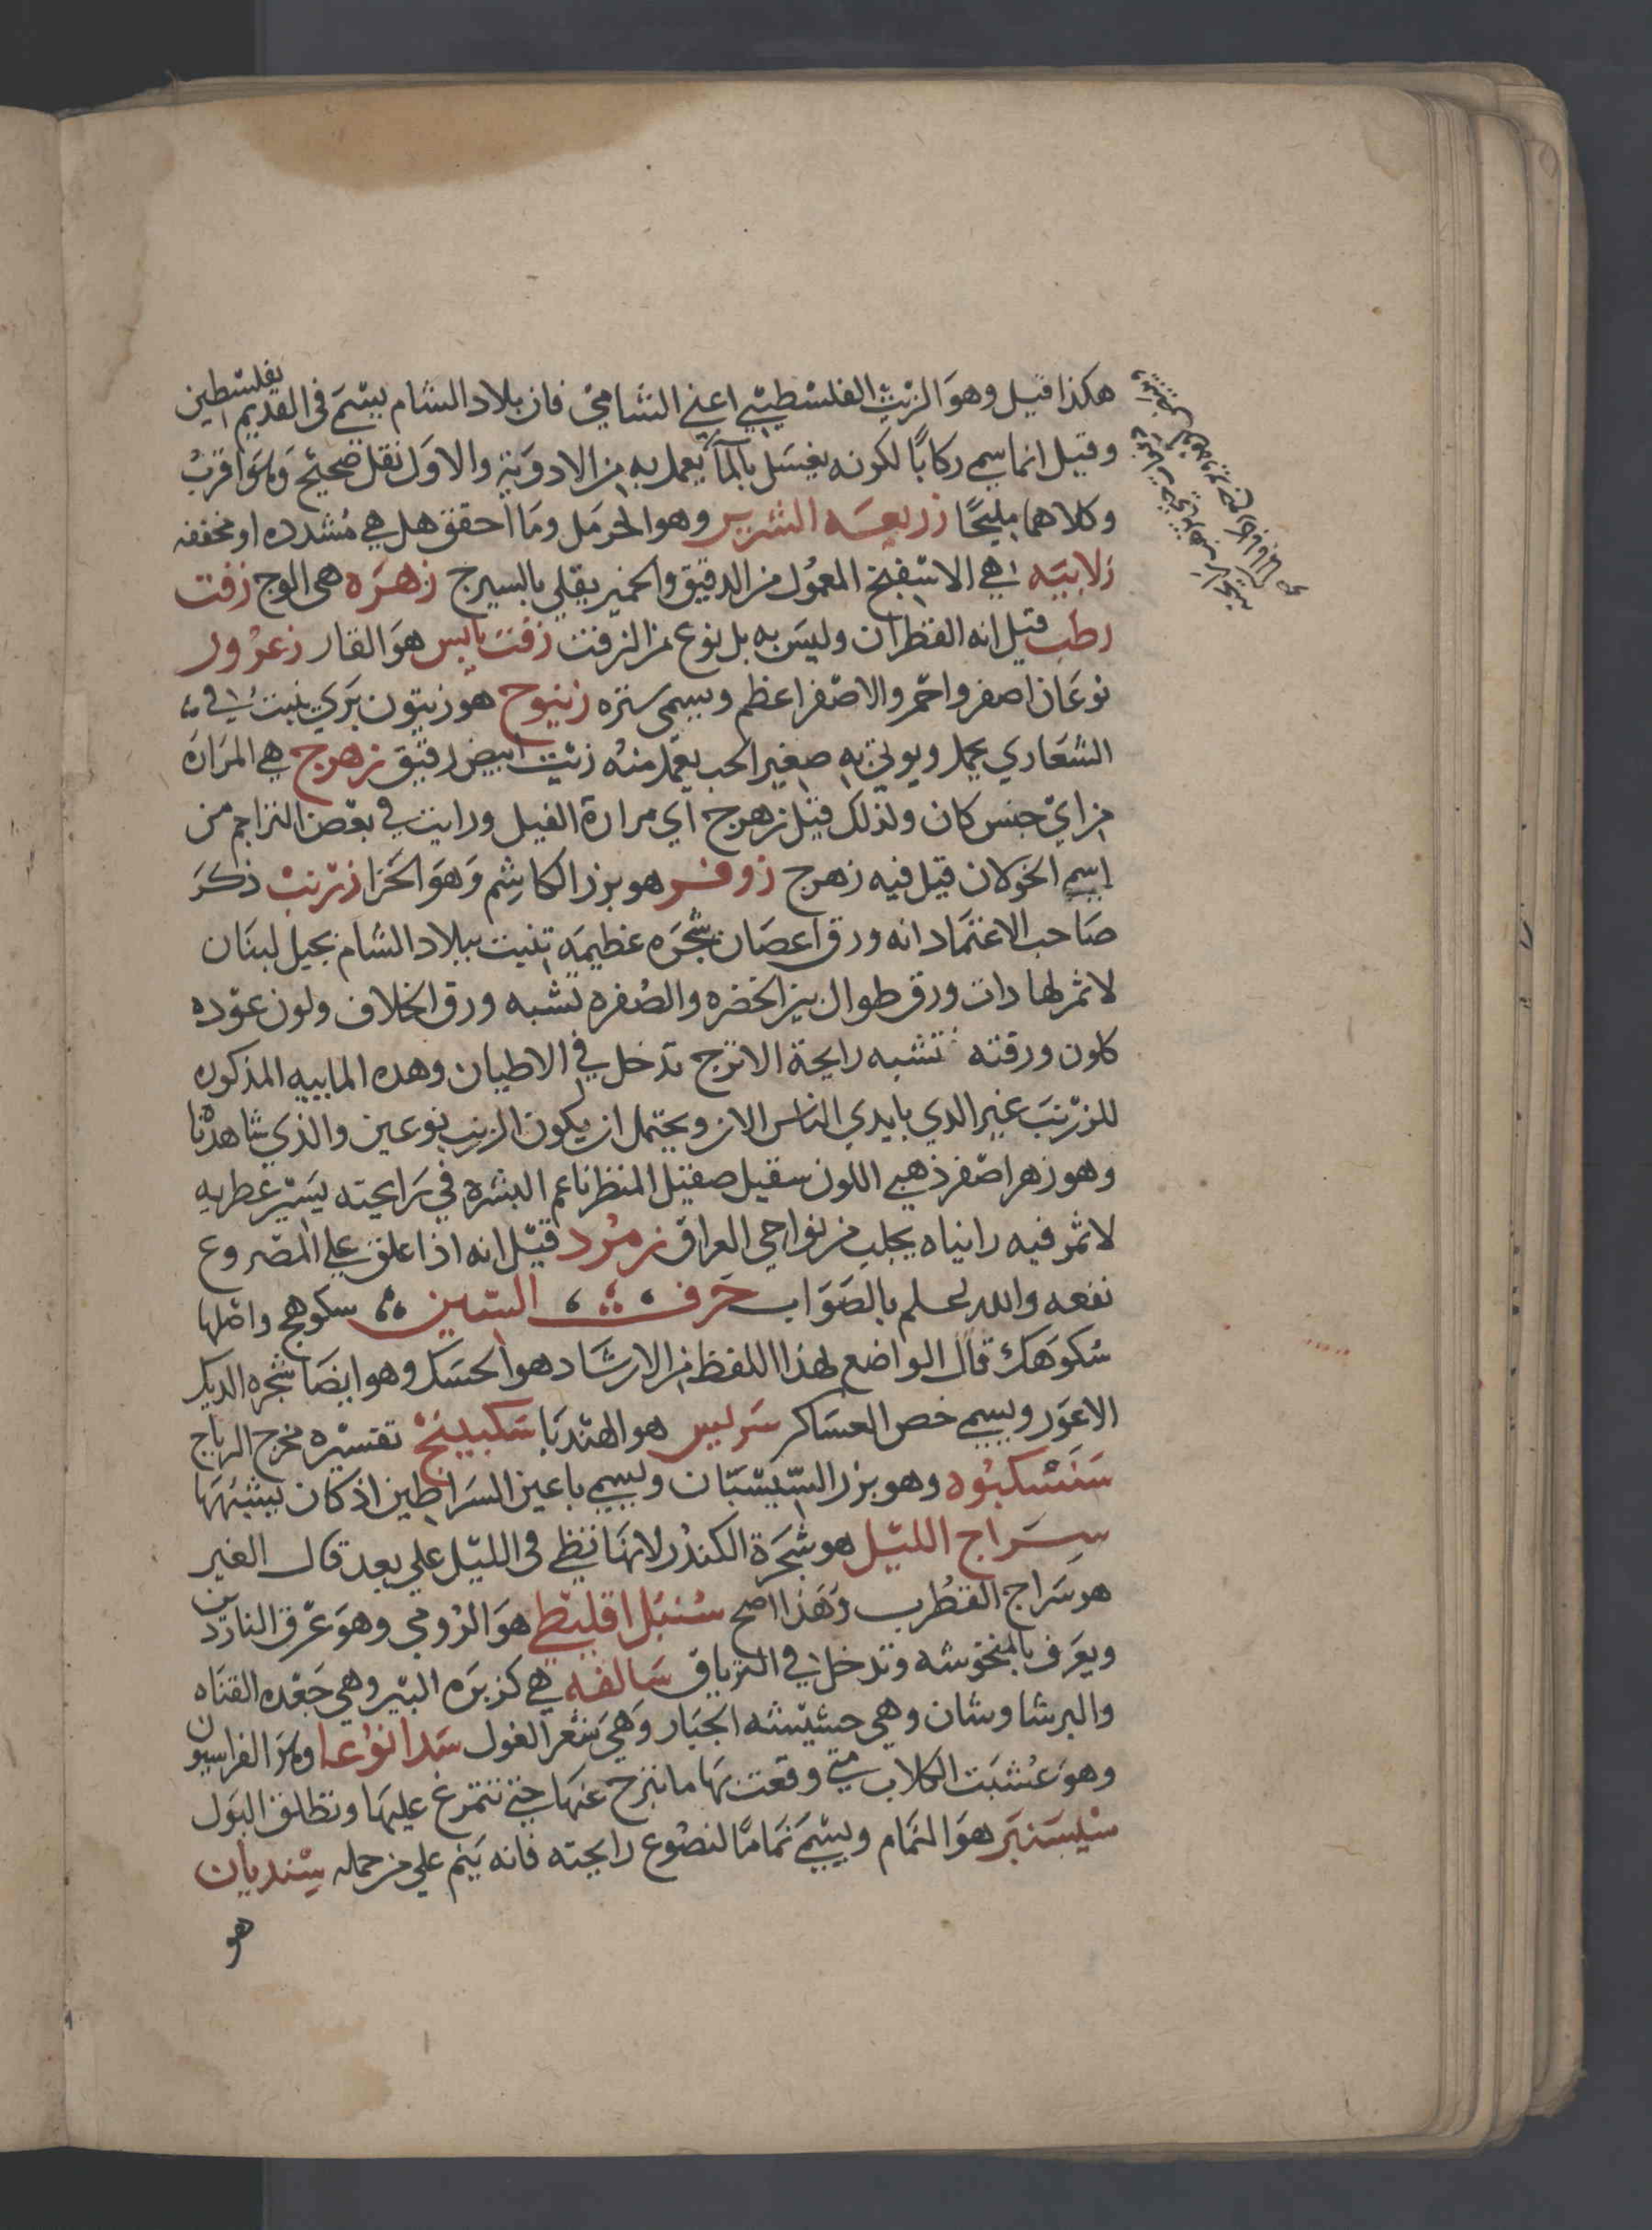 هكذا قيل وهو الزيت الفلسطيني اعني الشامي فان بلاد الشام يسمى في القديم بفلسطين
وقيل انما سمي ركابًا لكونه يغسل بالمآ يعمل به من الادوية والاول نقل صحيح وهو اقرب
وكلاهما مليحًا زريعه وهو الحرمل وما احقق هل هي مشدده او مخففه
زلابيه هي الاسفنج المعمول من الدقيق والخمير يقلي بالسيرج زهره هي الوج زفت
رطب قيل انه القطران وليس به بل نوع من الزفت زفت يابس هو القار زعرور
نوعان اصفر واحمر والاصفر اعظم ويسمى زنبوج هو زيتون بري ينبت في
الشعاري يحمل ويوتي به صغير الحب يعمل منه زيت ابيض رقيق زهرج هي المراره
من اي جنس كان ولذلك قيل زهرج اي مرارة الفيل ورايت في بعض التراجم من
اسم الخولان قيل فيه زهرج زوفر هو بزر الكاشم وهو الحزا زرنب ذكر
صاحب الاعتماد انه ورق اعصان شجره عظيمه تنبت ببلاد الشام بجبل لبنان
لا ثمر لها دات ورق طوال بين الخضره والصفره تشبه ورق الخلاف ولون عوده
كلون ورقته تشبه رايحة الاترج تدخل في الاطيان وهده المابيه المذكوره
للزرنب غير الدي بايدي الناس الان ويحتمل ان يكون الزرنب نوعين والذي شاهدنا
وهو زهر اصفر ذهبي اللون سقيل صقيل المنظر ناعم البشرة في رايحته يسير عطريه
لا ثمر فيه رايناه يجلب من نواحي العراق زمرد قيل انه اذا علق علي المصروع
نفعه والله اعلم بالصواب حرف السين سكوهج واصلها
سكوهك قال الواضع لهذا اللفظ من الارشاد هو الحسك وهو ايضا شجره الديك
الاعور ويسمى خص العساكر سريس هو الهندبا سكبينج تفسيره مخرج الرياح
سنسكبوه وهو بزر السيسبان ويسمي باعين السراطين اذ كان يشبهها
سراج الليل هو شجرة الكندر لانها تظي في الليل علي بعد قال الغير
هو سراج القطرب وهذا اصح سنبل اقليطي هو الرومي وهو عرق الناردين
ويعرف بالمنخوشه وتدخل في الترياق سالفه هي كزبره البير وهي جعده القناه
والبرشاوشان وهي حشيشه الجبار وهي شعر الغول وهو الفراسيون
وهو عشبت الكلاب متي وقعت بها ما تبرح عنها حتي تتمرغ عليها وتطلق البول
سيسنبر هو النمام ويسمى نمامًا لنضوع رايحته فانه ينم علي من حمله سنديان
هو